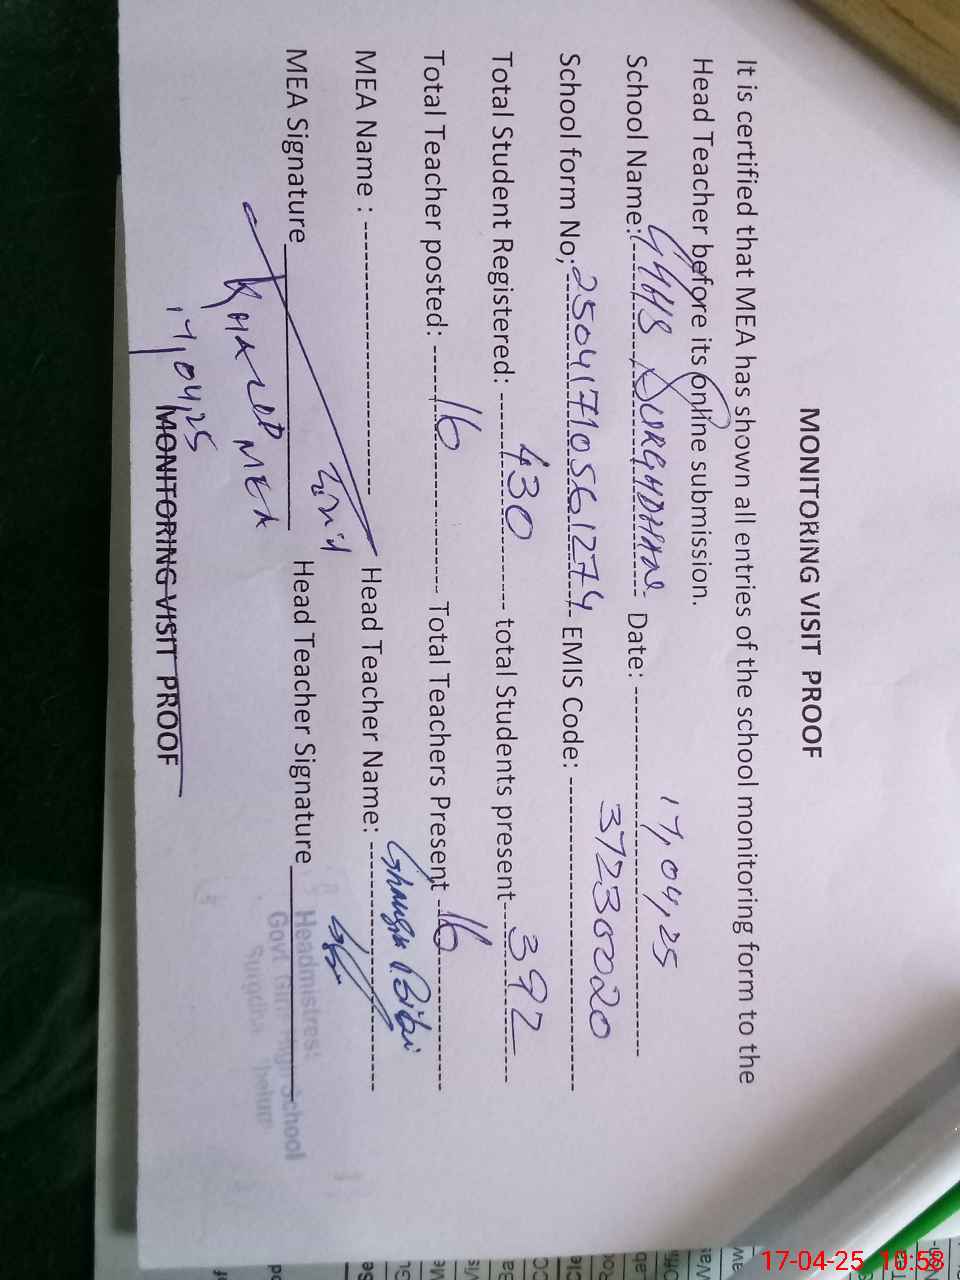 MONITORING VISIT PROOF
It is certified that MEA has shown all entries of the school monitoring form to the
Head Teacher before its online submission.
School Name: GGHS SURGHDHAN Date: 17,04,25
School form No; 250417105612774 EMIS Code: 37230020
Total Student Registered: 430 total Students present 392
Total Teacher posted: 16 Total Teachers Present 16
MEA Name : Head Teacher Name: Bibi
MEA Signature Head Teacher Signature
KHALID MEA
17,04,25
Headmistress
Govt Girls High School
MONITORING VISIT PROOF
17-04-25 10:58